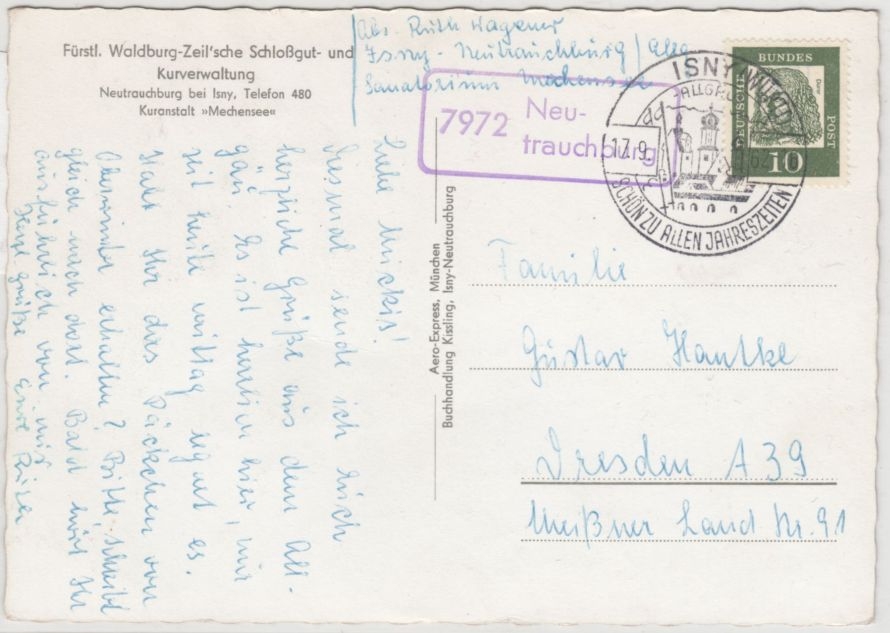 Fürstl. Waldburg-Zeil'sche Schloßgut- und
Kurverwaltung
Neutrauchburg bei Isny, Telefon 480
Kuranstalt »Mechensee«
Abs. Ruth Wagener
Isny-Neutrauchburg/Allg.
Sanatorium Mechensee
7972 Neu-
trauchburg
ISNY (WÜRTT)
ALLGÄU
17.9.
SCHÖN ZU ALLEN JAHRESZEITEN
DEUTSCHE BUNDESPOST
Dürer
10
Liebe Mickis!
Diesmal sende ich Euch
herzliche Grüße aus dem All-
gäu. Es ist herrlich hier, nur
seit heute mittag regnet es.
Habt Ihr das Päckchen von
erhalten? Bitte schreibt
gleich nach dort. Bald hört Ihr
ausführlich von mir
Herzl. Grüße Eure
Aero-Express, München
Buchhandlung Kissling, Isny-Neutrauchburg
Familie
Gustav Hantke
Dresden A 39
Meißner Land Str. 91